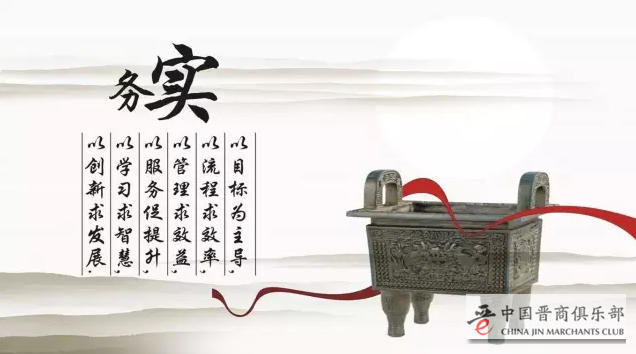 务实
以目标为主导，
以流程求效率，
以管理求效益，
以服务促提升，
以学习求智慧，
以创新求发展，
晋
中国晋商俱乐部
CHINA JIN MARCHANTS CLUB